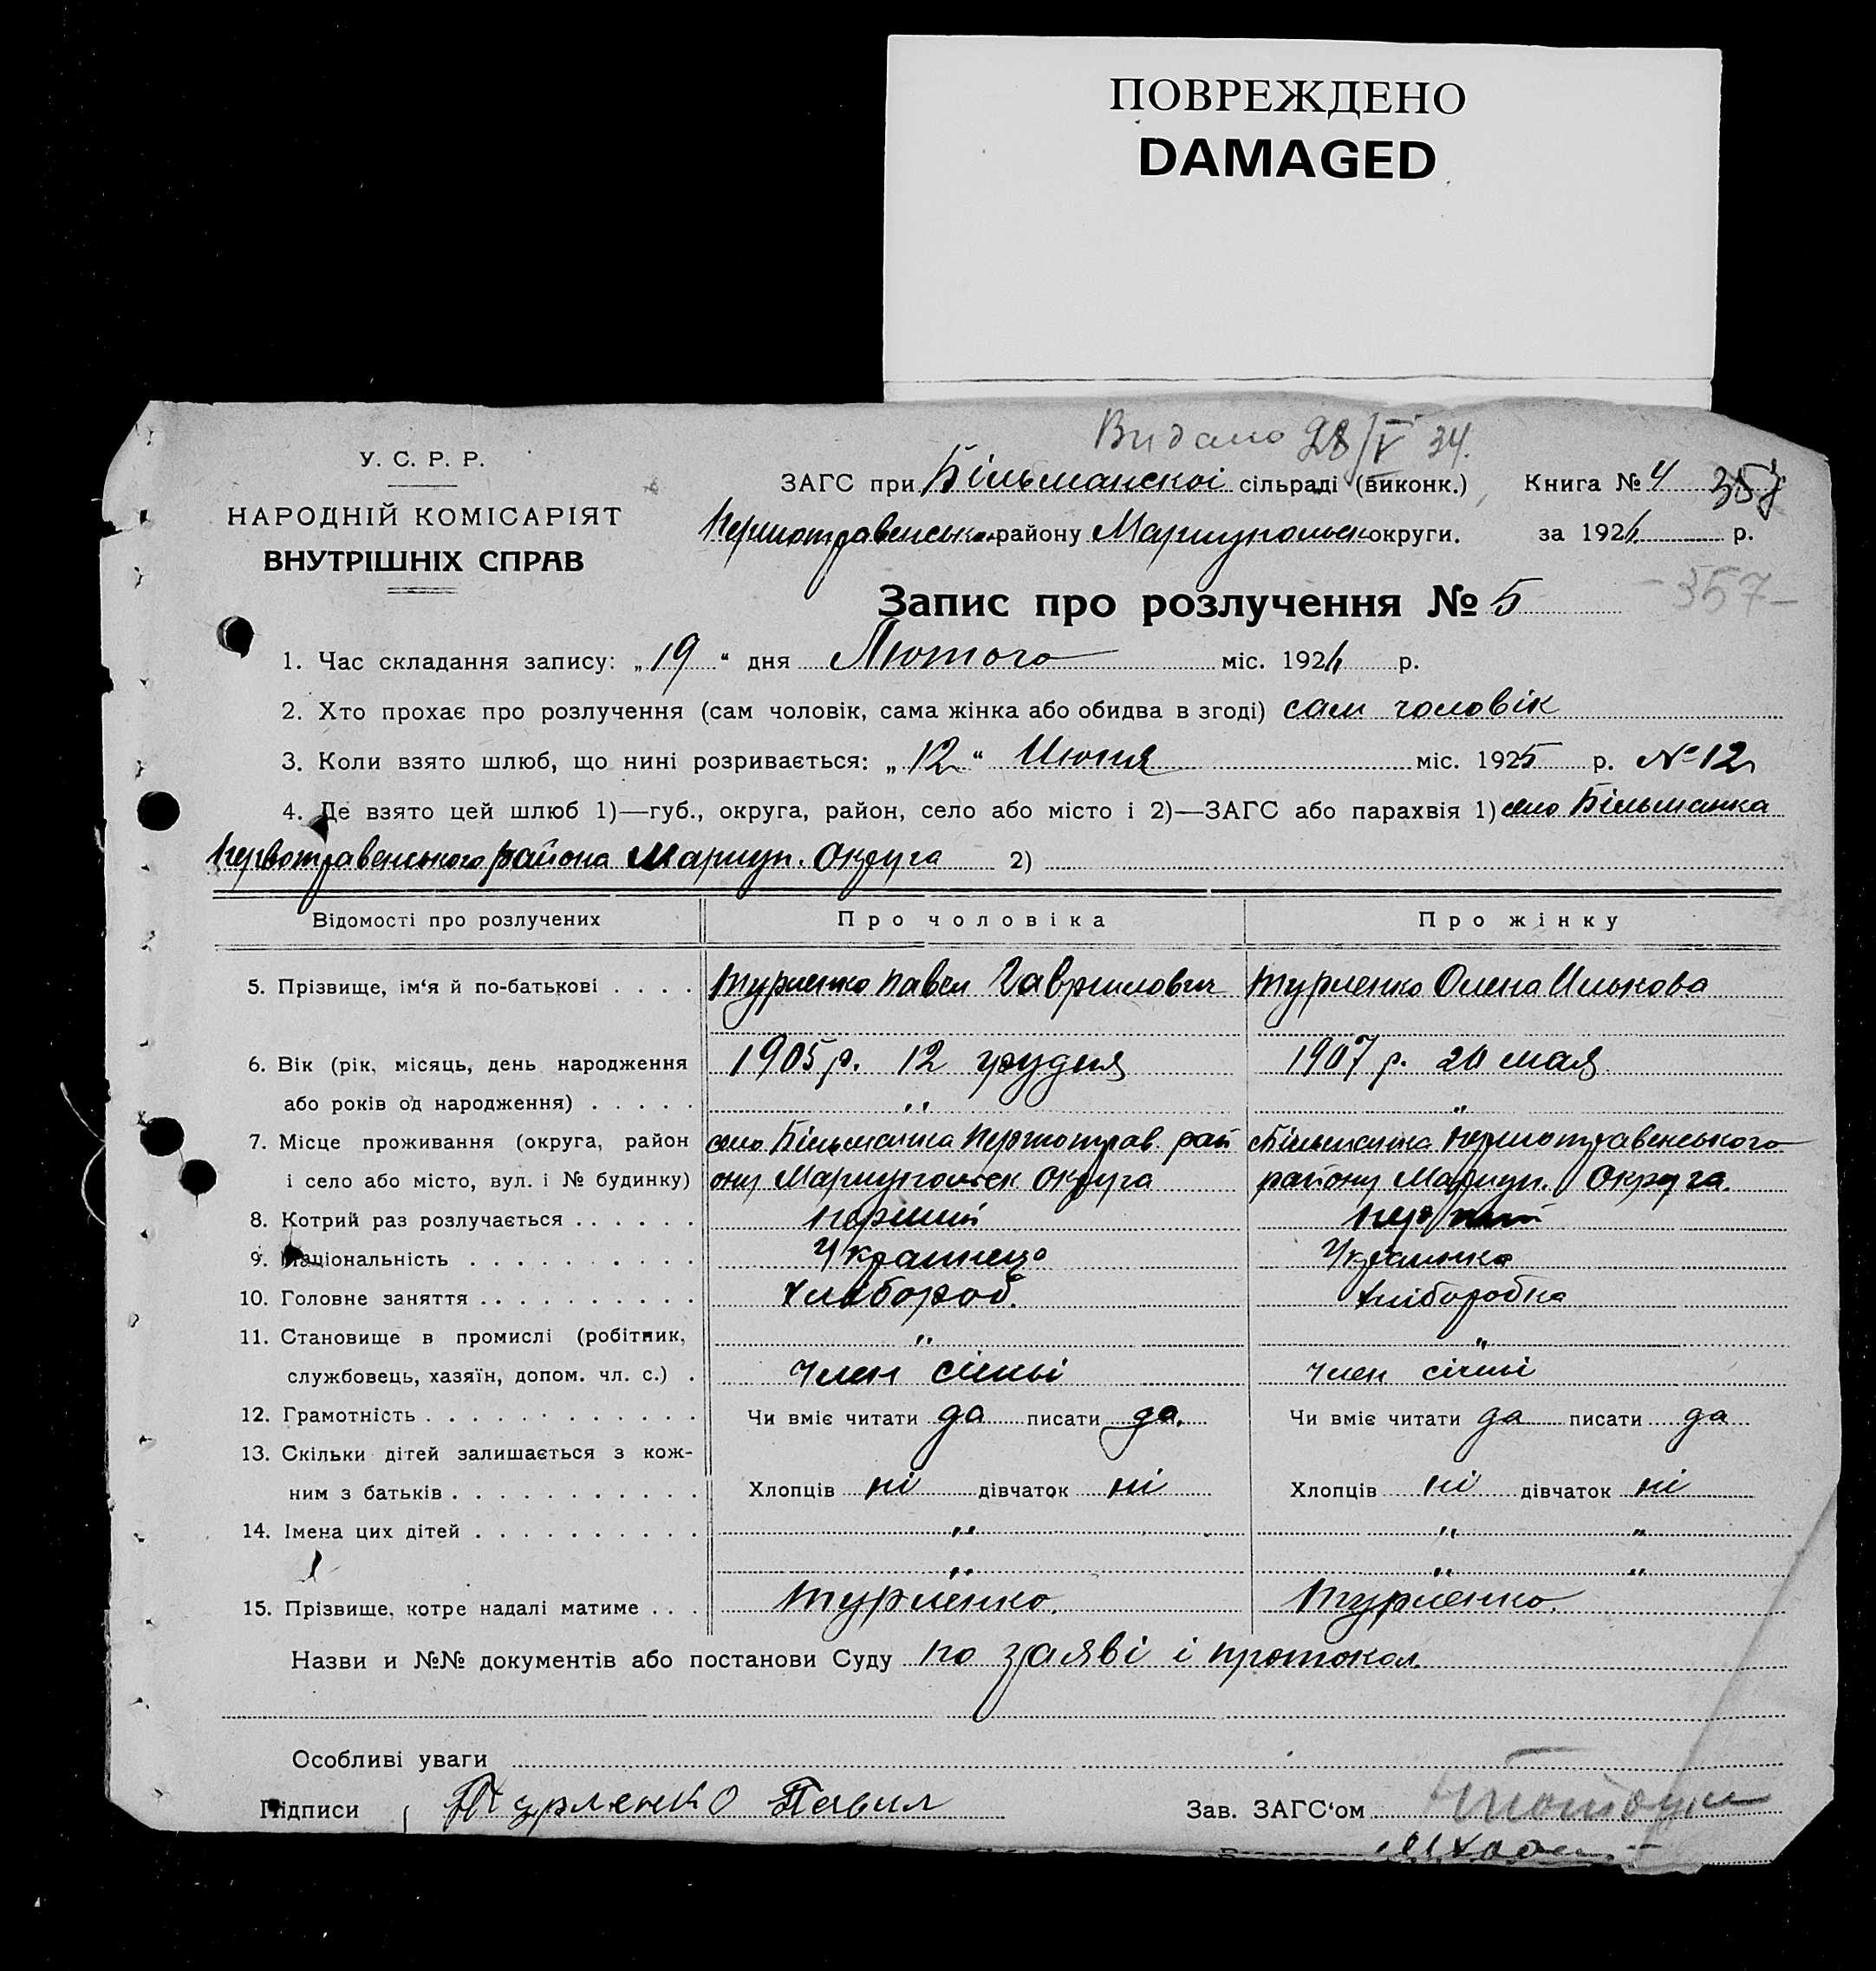 ПОВРЕЖДЕНО
DAMAGED
Видано 28/V 34.
У. С. Р. Р.
НАРОДНІЙ КОМІСАРІЯТ
ВНУТРІШНІХ СПРАВ
ЗАГС при Більманскоі сільраді (виконк.) Книга № 4 357
Першотравенськ району Мариупольск округи. за 192 р.
Запис про розлучення № 5
-357-
1. Час складання запису: „19“ дня Лютого міс. 192 р.
2. Хто прохає про розлучення (сам чоловік, сама жінка або обидва в згоді) сам чоловік
3. Коли взято шлюб, що нині розривається: „12“ Июня міс. 1925 р. № 12
4. Де взято цей шлюб 1)—губ., округа, район, село або місто і 2)—ЗАГС або парахвія 1) село Більманка
Первотравенського района Мариуп. Округа 2)
Відомості про розлучених Про чоловіка Про жінку
5. Прізвище, ім‘я й по-батькові . . . . Турленко Павел Гаврилович Турленко Олена Илькова
6. Вік (рік, місяць, день народження 1905 р. 12 грудня 1907 р. 20 мая
або років од народження) . . . . . „ „
7. Місце проживання (округа, район село Більманка Першотрав. рай с Більманка Першотравенського
і село або місто, вул. і № будинку) ону Мариупольск Округа району Мариуп. Округа.
8. Котрий раз розлучається . . . . . . перший перший
9. Національність . . . . . . . . . . Украинец Украинка
10. Головне заняття . . . . . . . . . . Хлібороб. Хліборобка
11. Становище в промислі (робітник, „ „
службовець, хазяїн, допом. чл. с.) . Член сімьі Член сімьі
12. Грамотність . . . . . . . . . . . . Чи вміє читати да писати да. Чи вміє читати да писати да
13. Скільки дітей залишається з кож-
ним з батьків . . . . . . . . . . . Хлопців ні дівчаток ні Хлопців ні дівчаток ні
14. Імена цих дітей . . . . . . . . . . „ „ „
„ „ „
15. Прізвище, котре надалі матиме . . . Турленко. Турленко.
Назви и №№ документів або постанови Суду по заяві і протокол.
Особливі уваги
Підписи Турленко Павил Зав. ЗАГС‘ом